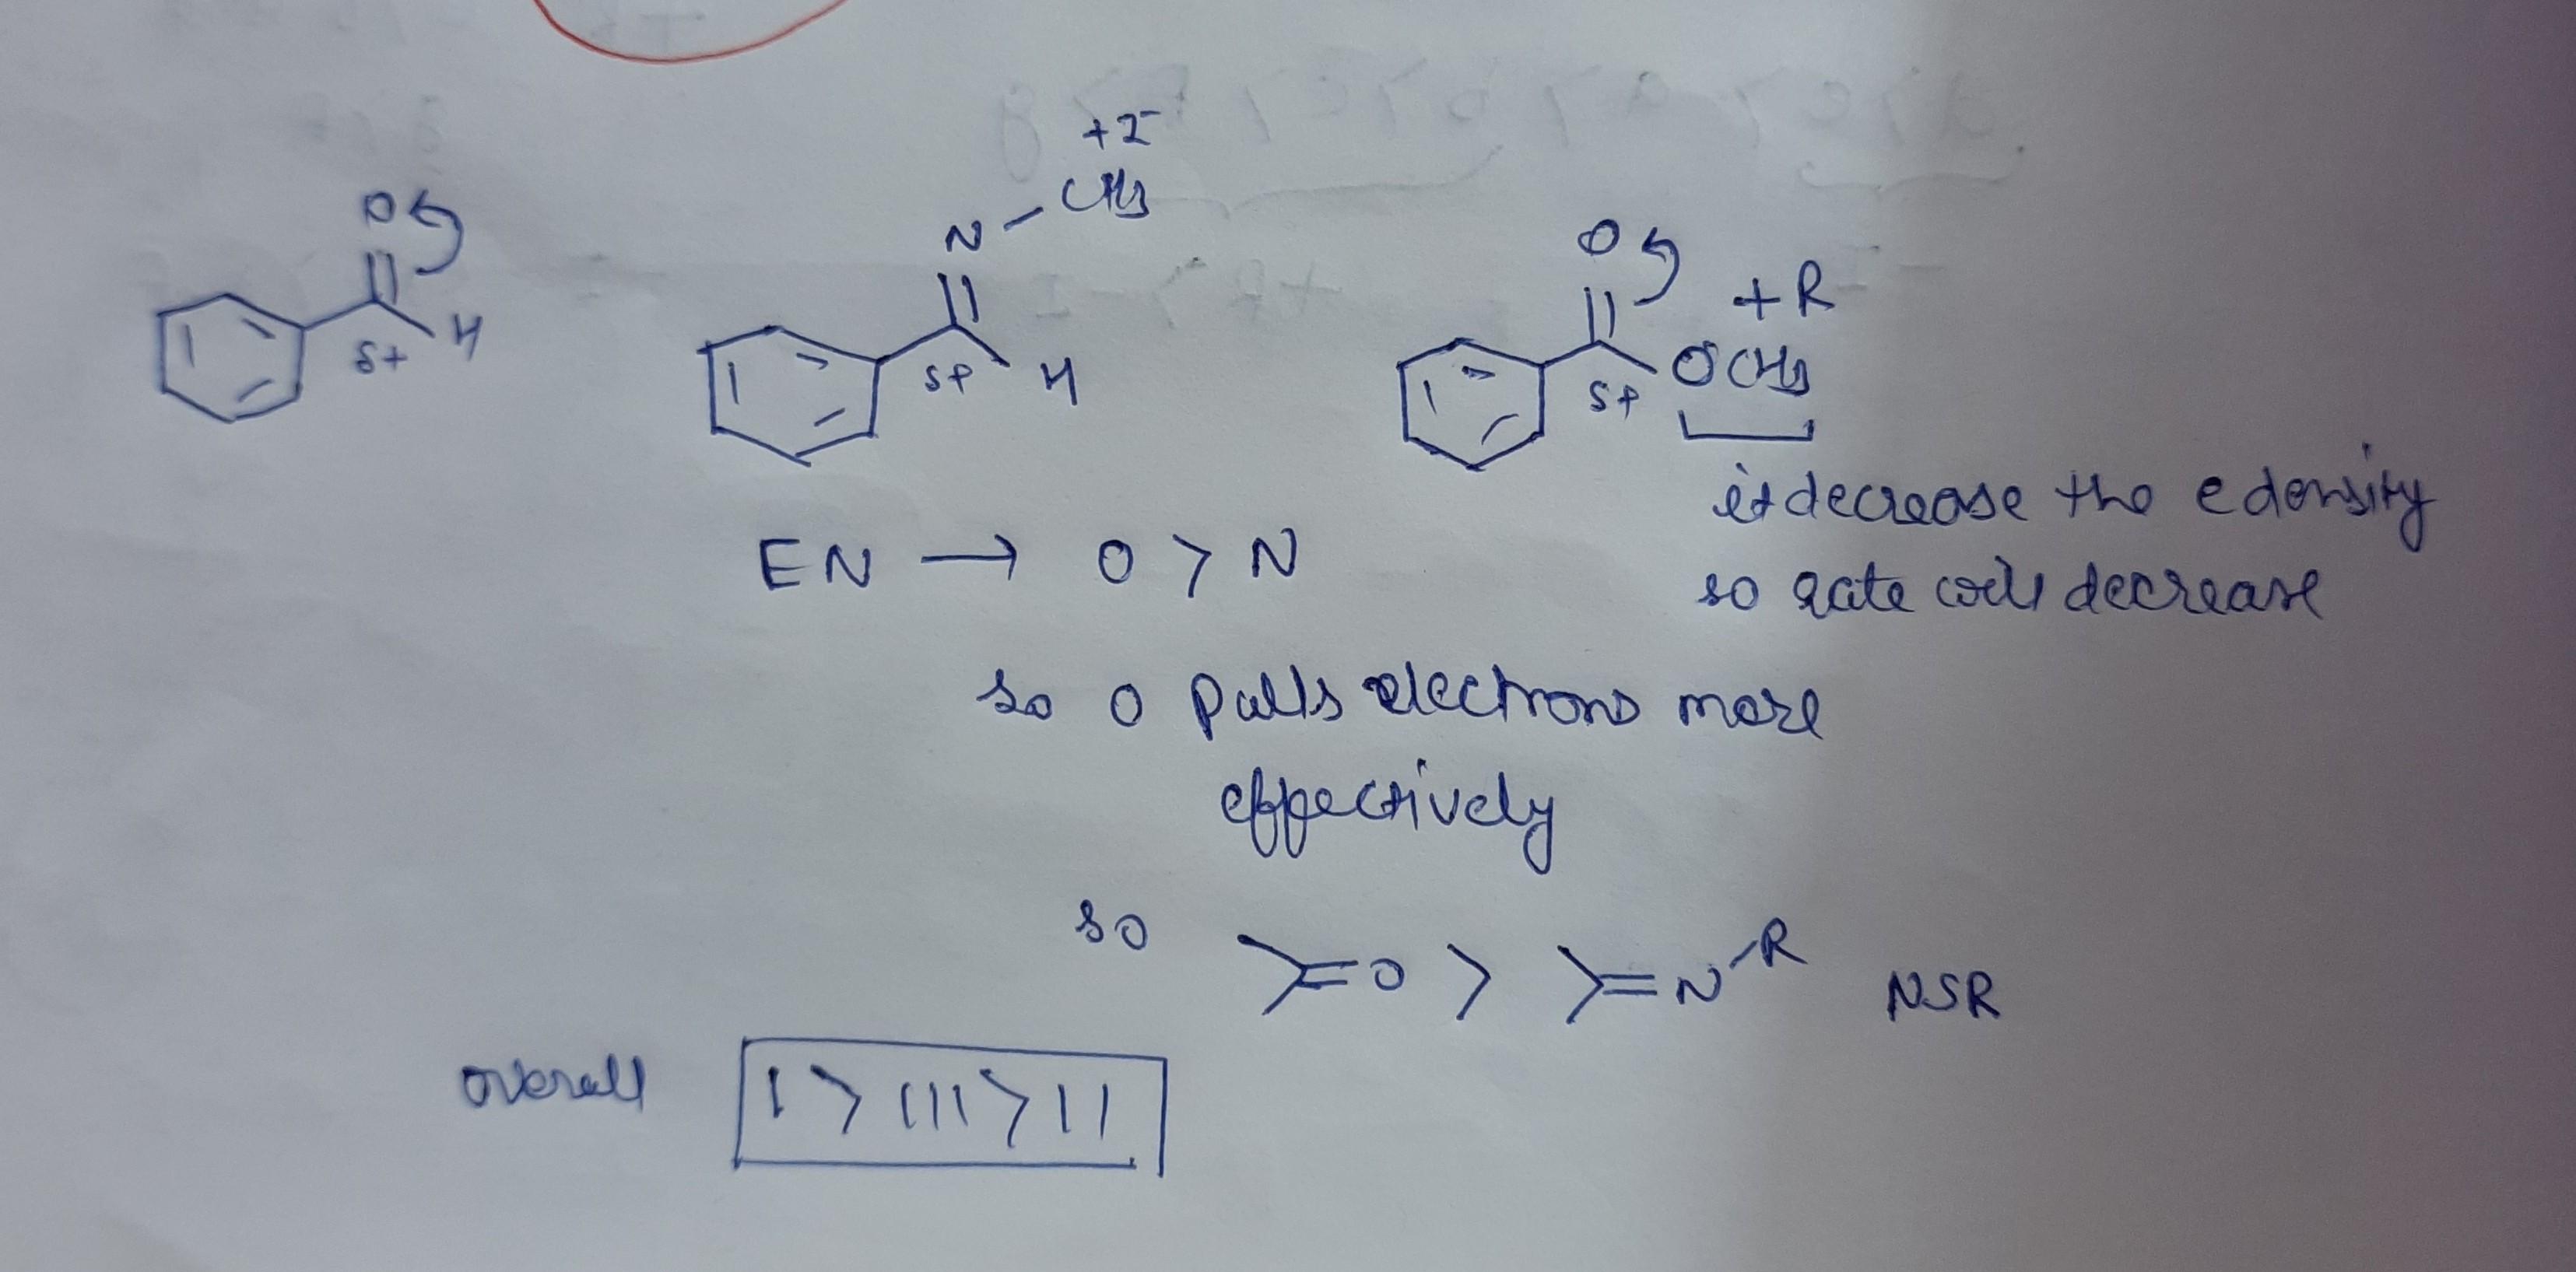 O
H
δ+
+I
CH3
N
δ+
H
O
+R
OCH3
δ+
it decrease the e density
so rate will decrease
EN → O > N
so O pulls electrons more
effectively
so >=O > >=N-R NSR
overall I > III > II